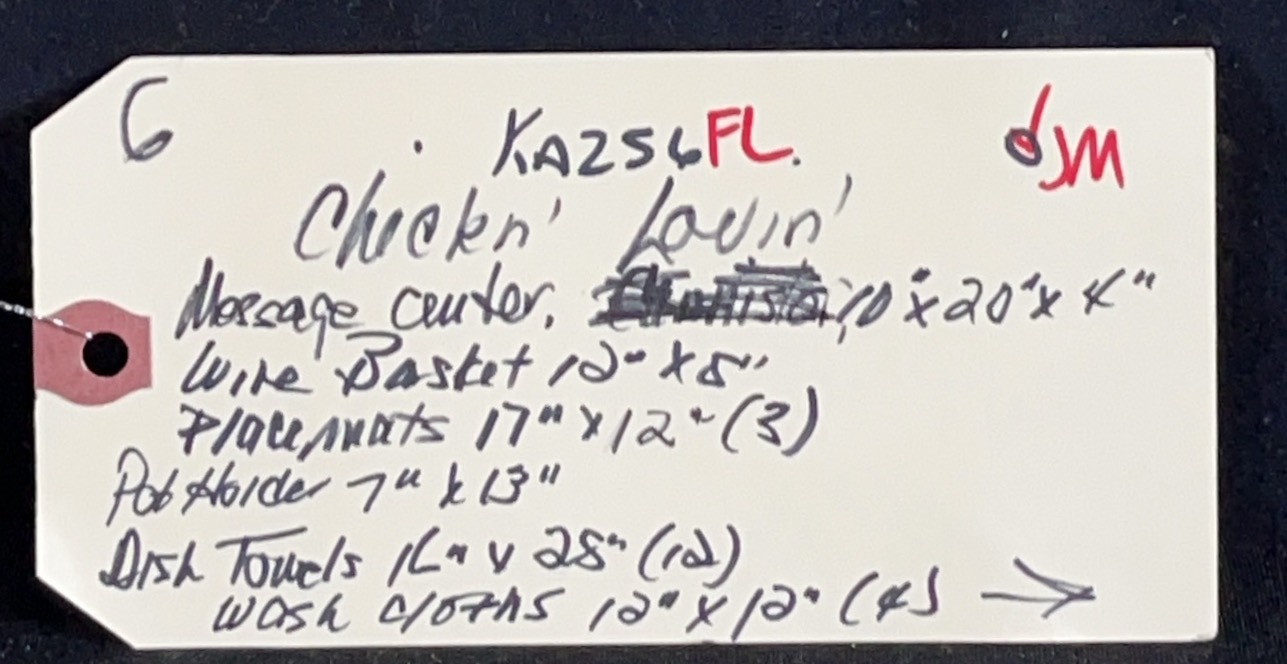 6 KA256FL. djm
Chickn' Lovin'
Message Center. 10" x 20" x 4"
Wire Basket 12" x 8"
Placemats 17" x 12" (3)
Pot Holder 7" x 13"
Dish Towels 16" x 28" (12)
Wash cloths 12" x 12" (4) →